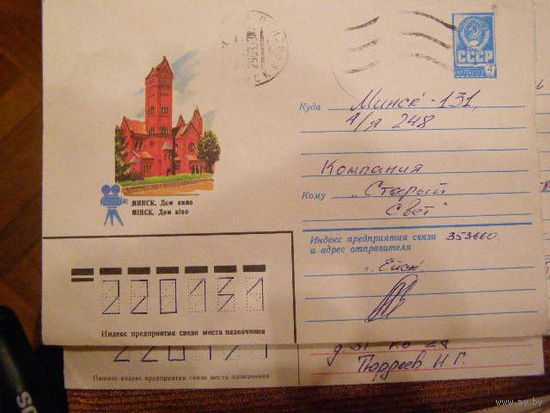 СССР
Куда Минск-131,
А/Я 248
Компания
Кому „Старый
Свет"
МИНСК. Дом кино
МІНСК. Дом кіно
Индекс предприятия связи 353660.
и адрес отправителя
г. Ейск
220131
Индекс предприятия связи места назначения
Пишите индекс предприятия связи места назначения
www.ay.by